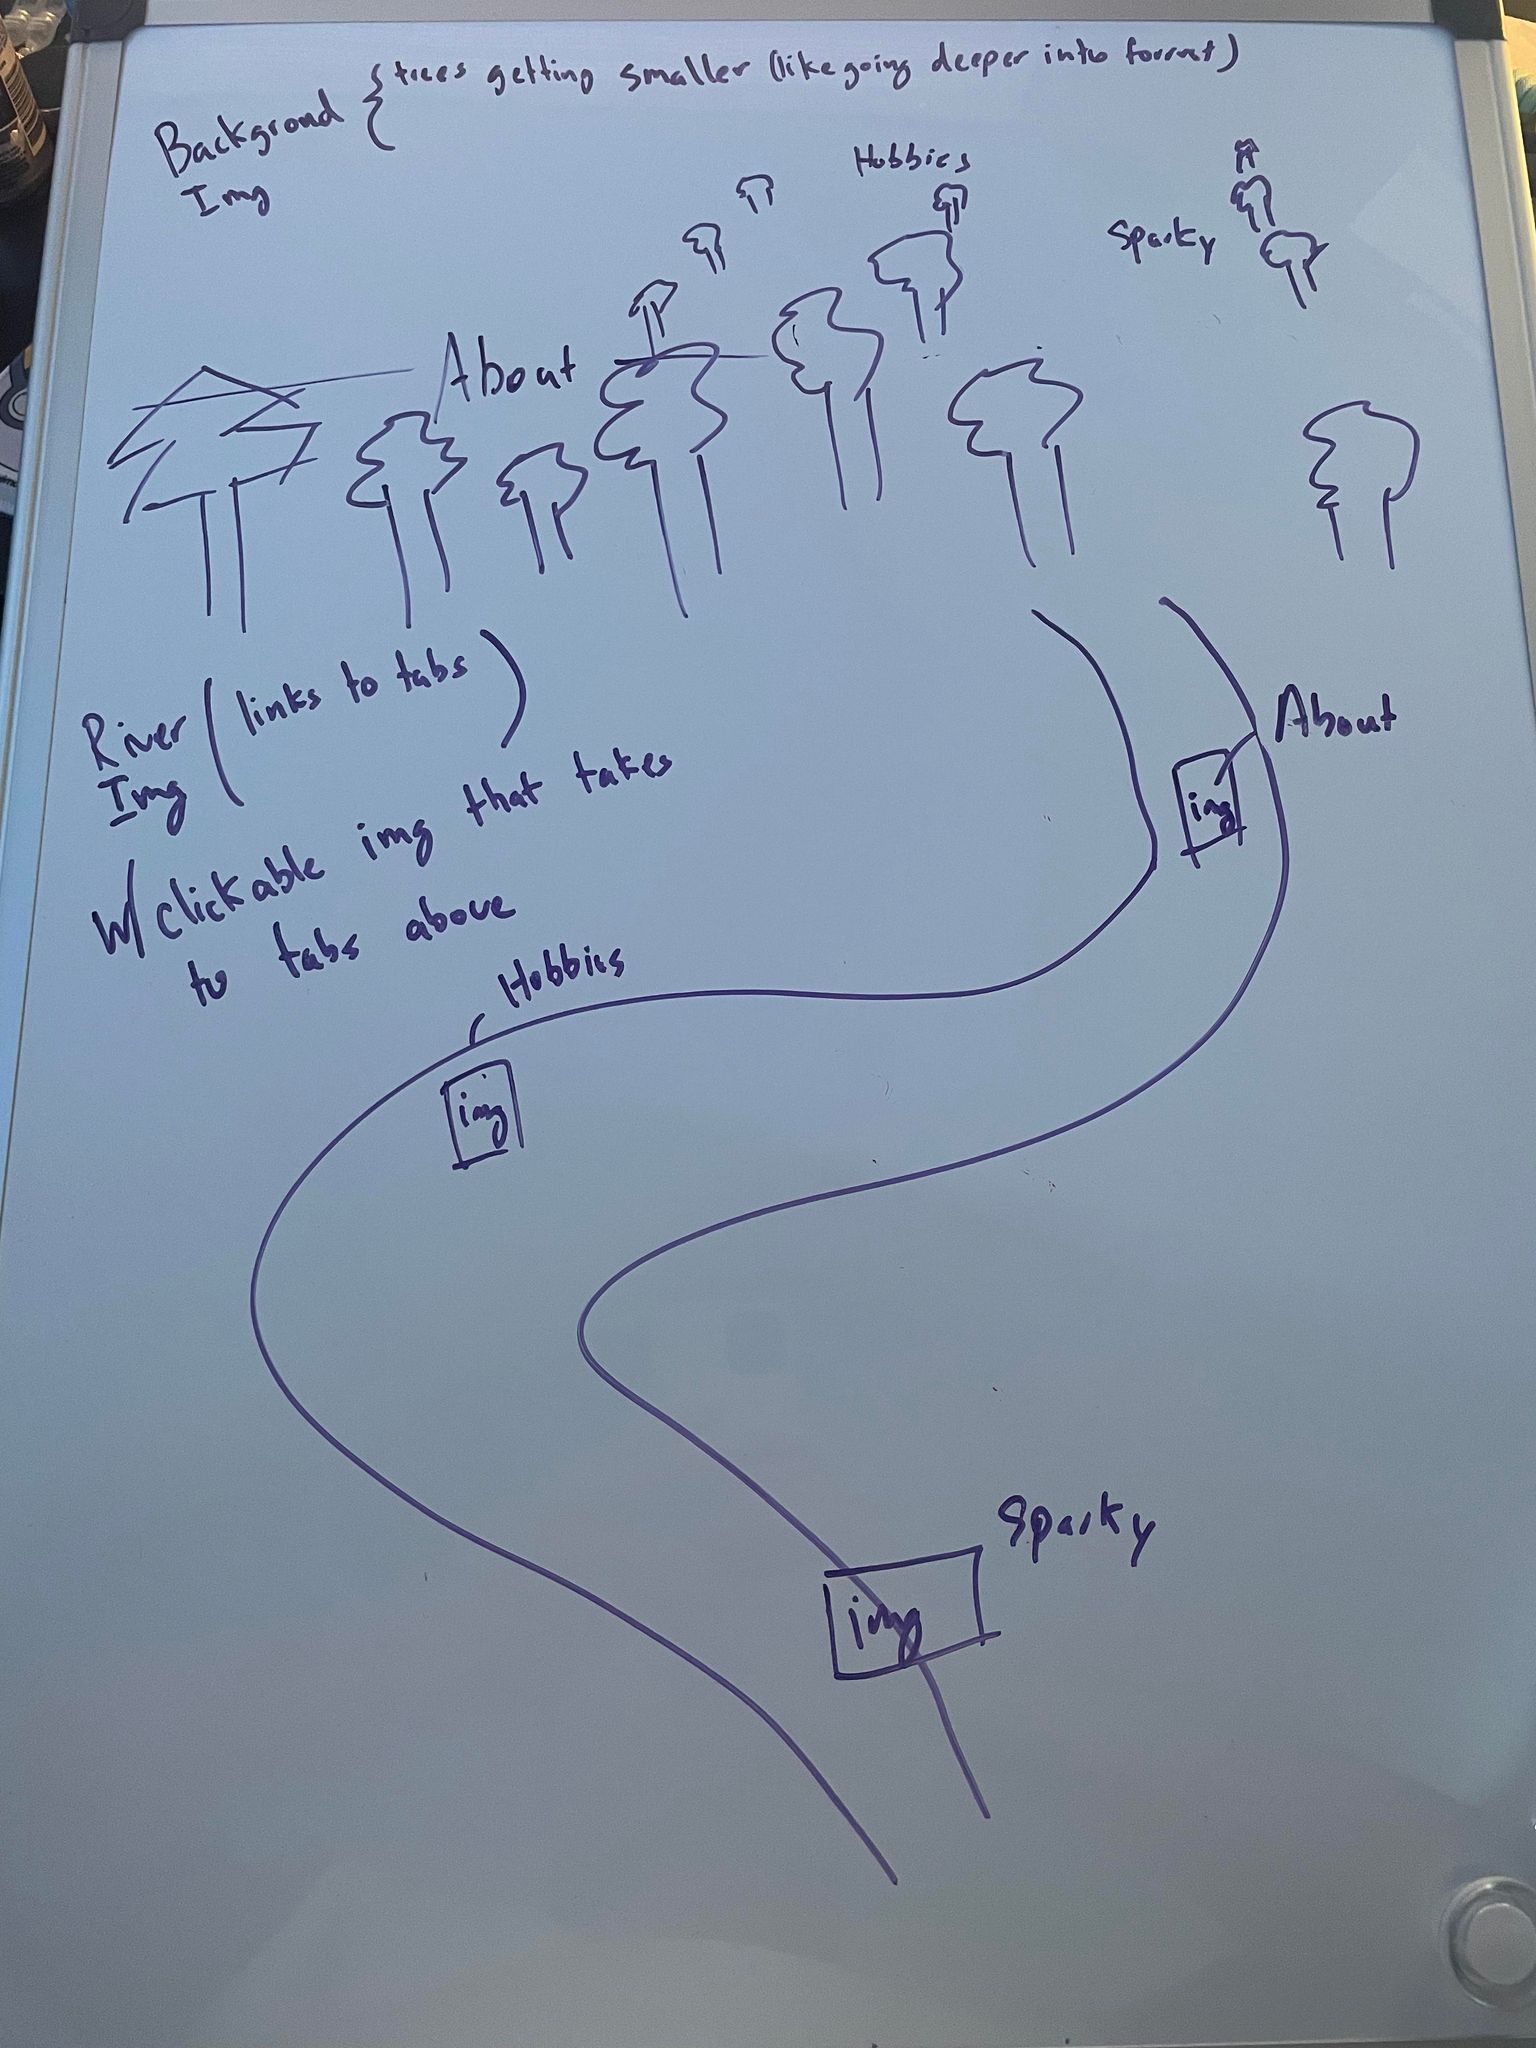 trees getting smaller (like going deeper into forrest)
Backgrond {
Img
Hobbies
Sparky
About
River (links to tabs)
Img
W/ clickable img that takes
to tabs above
About
img
Hobbies
img
Sparky
img